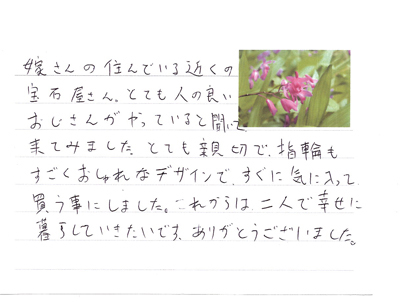 嫁さんの住んでいる近くの
宝石屋さん。とても人の良い
おじさんがやっていると聞いて、
来てみました。とても親切で、指輪も
すごくおしゃれなデザインで、すぐに気に入って
買う事にしました。これからは、二人で幸せに
暮らしていきたいです。ありがとうございました。